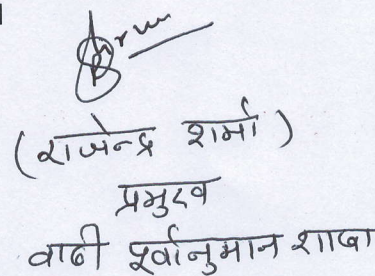 (राजेन्द्र शर्मा)
प्रमुख
बाढ़ पूर्वानुमान शाखा